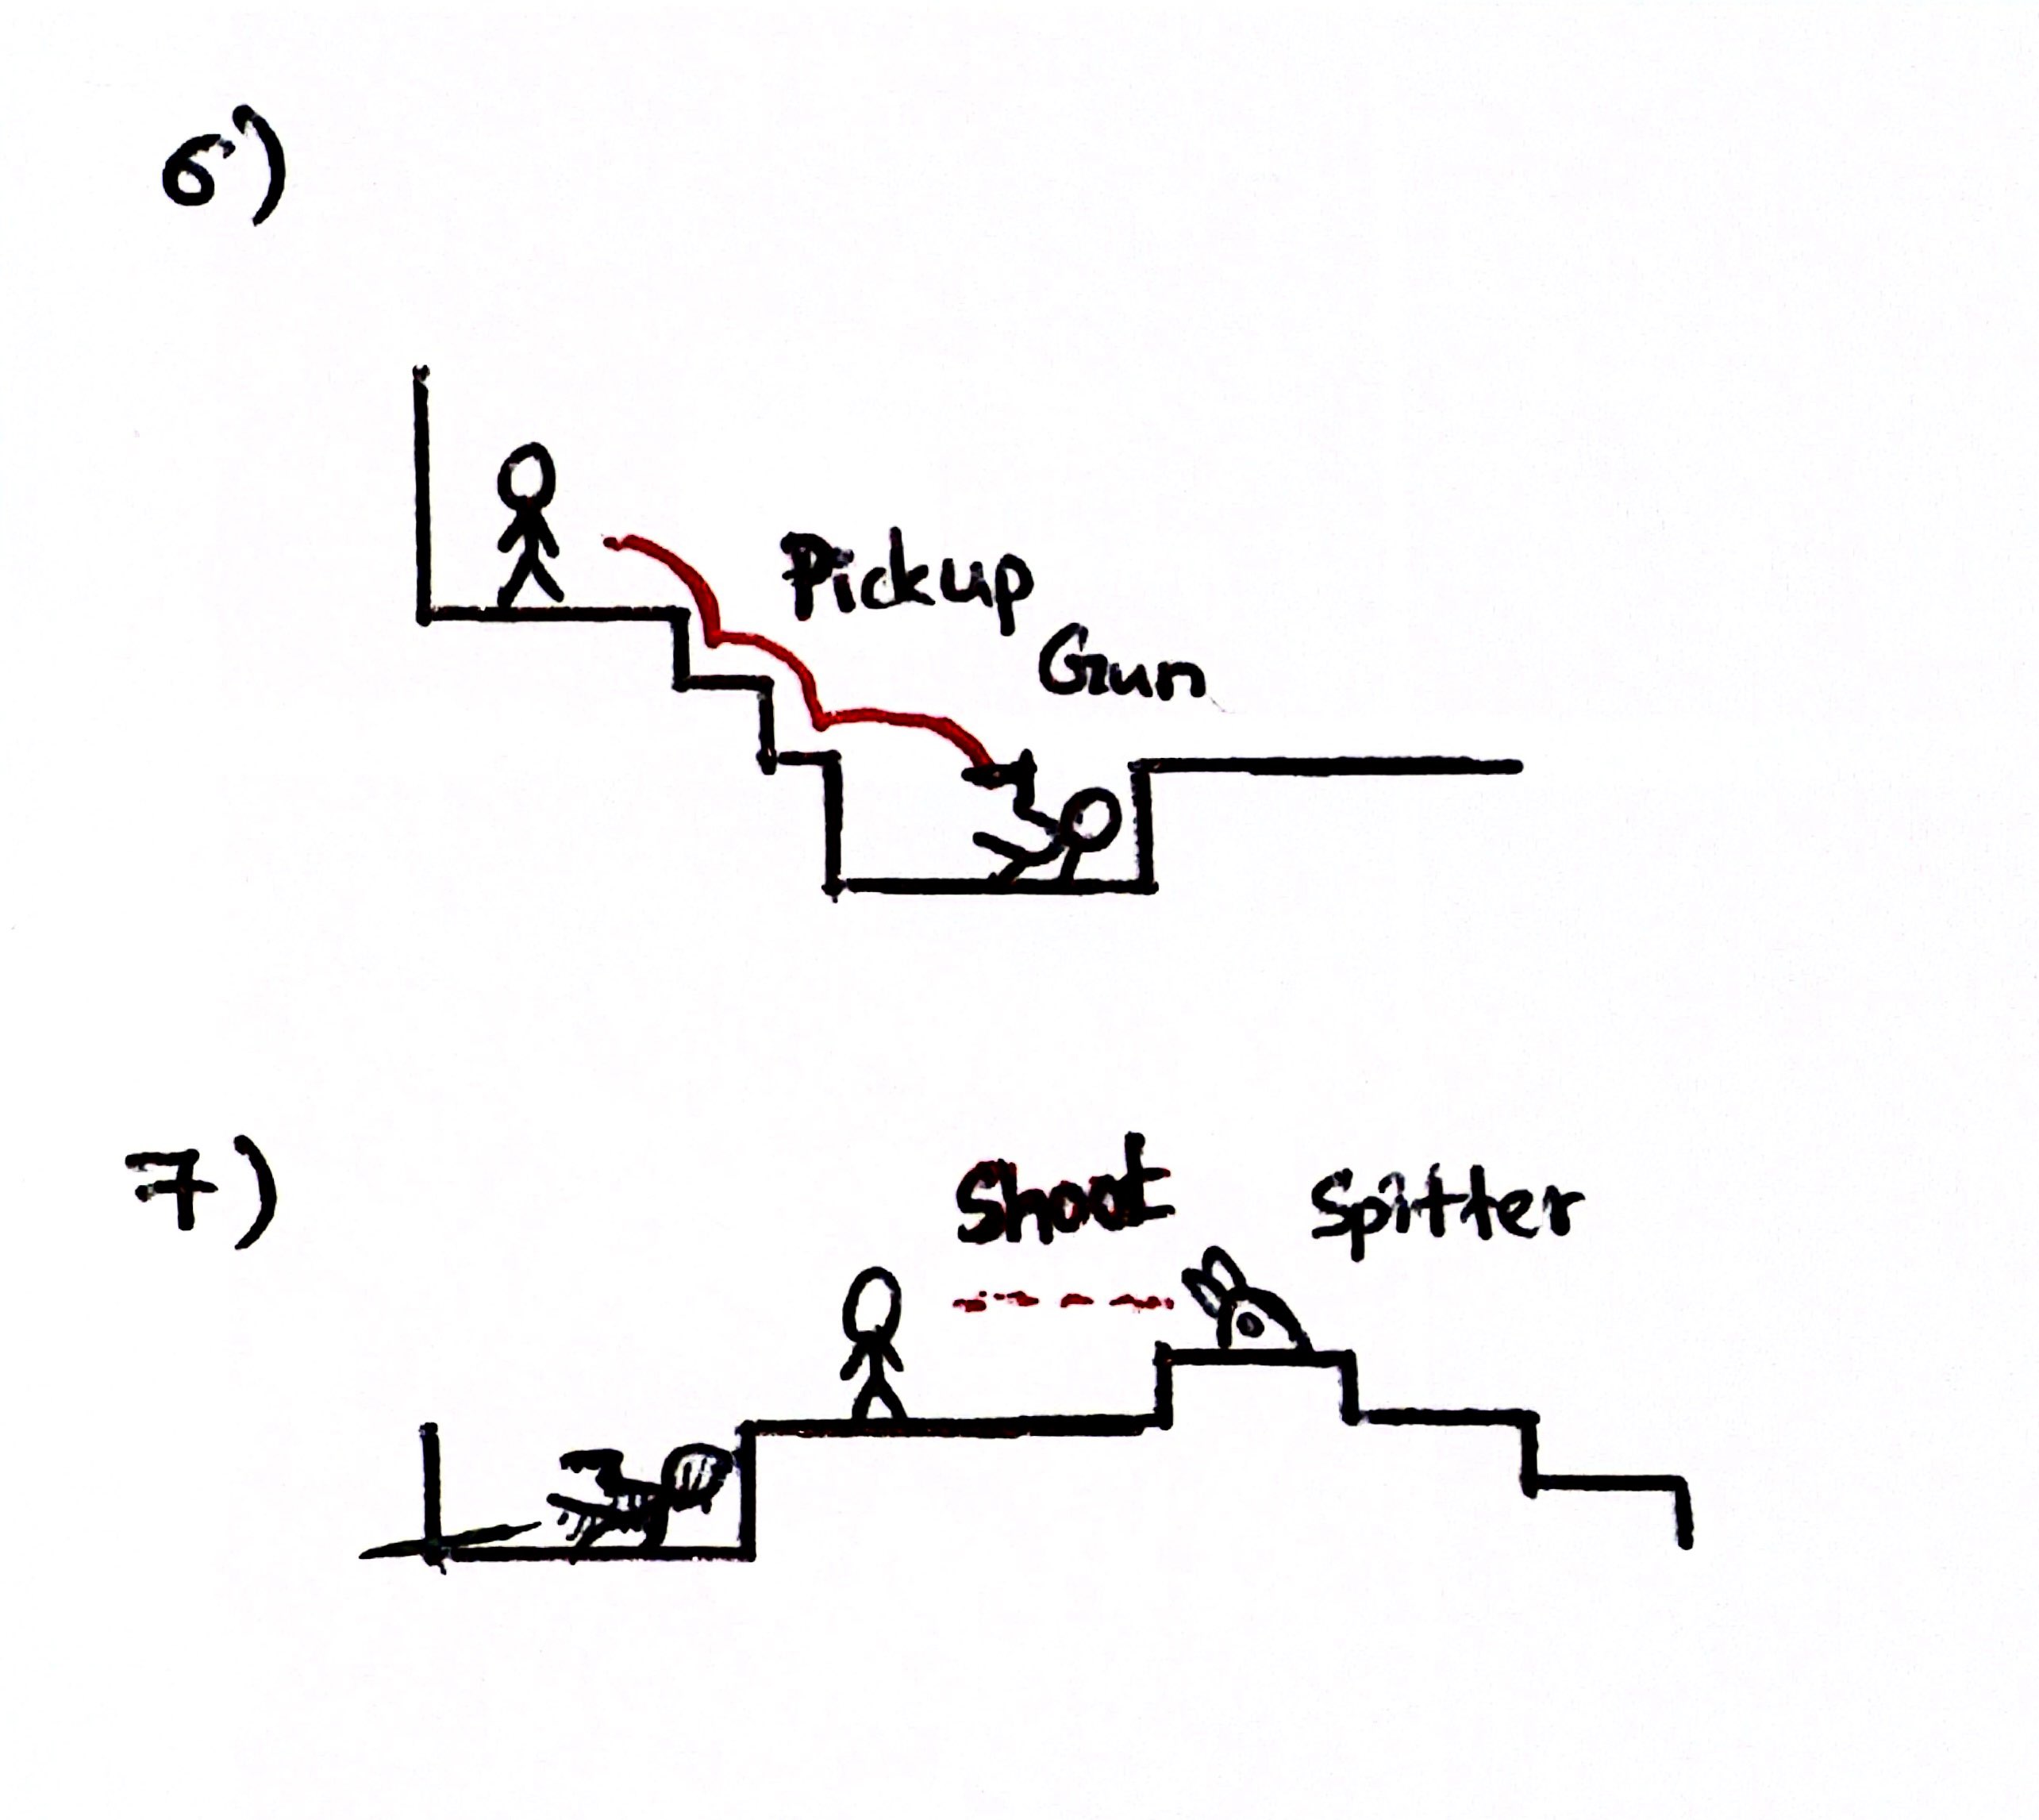 6)
Pickup
Gun
7)
Shoot Spitter